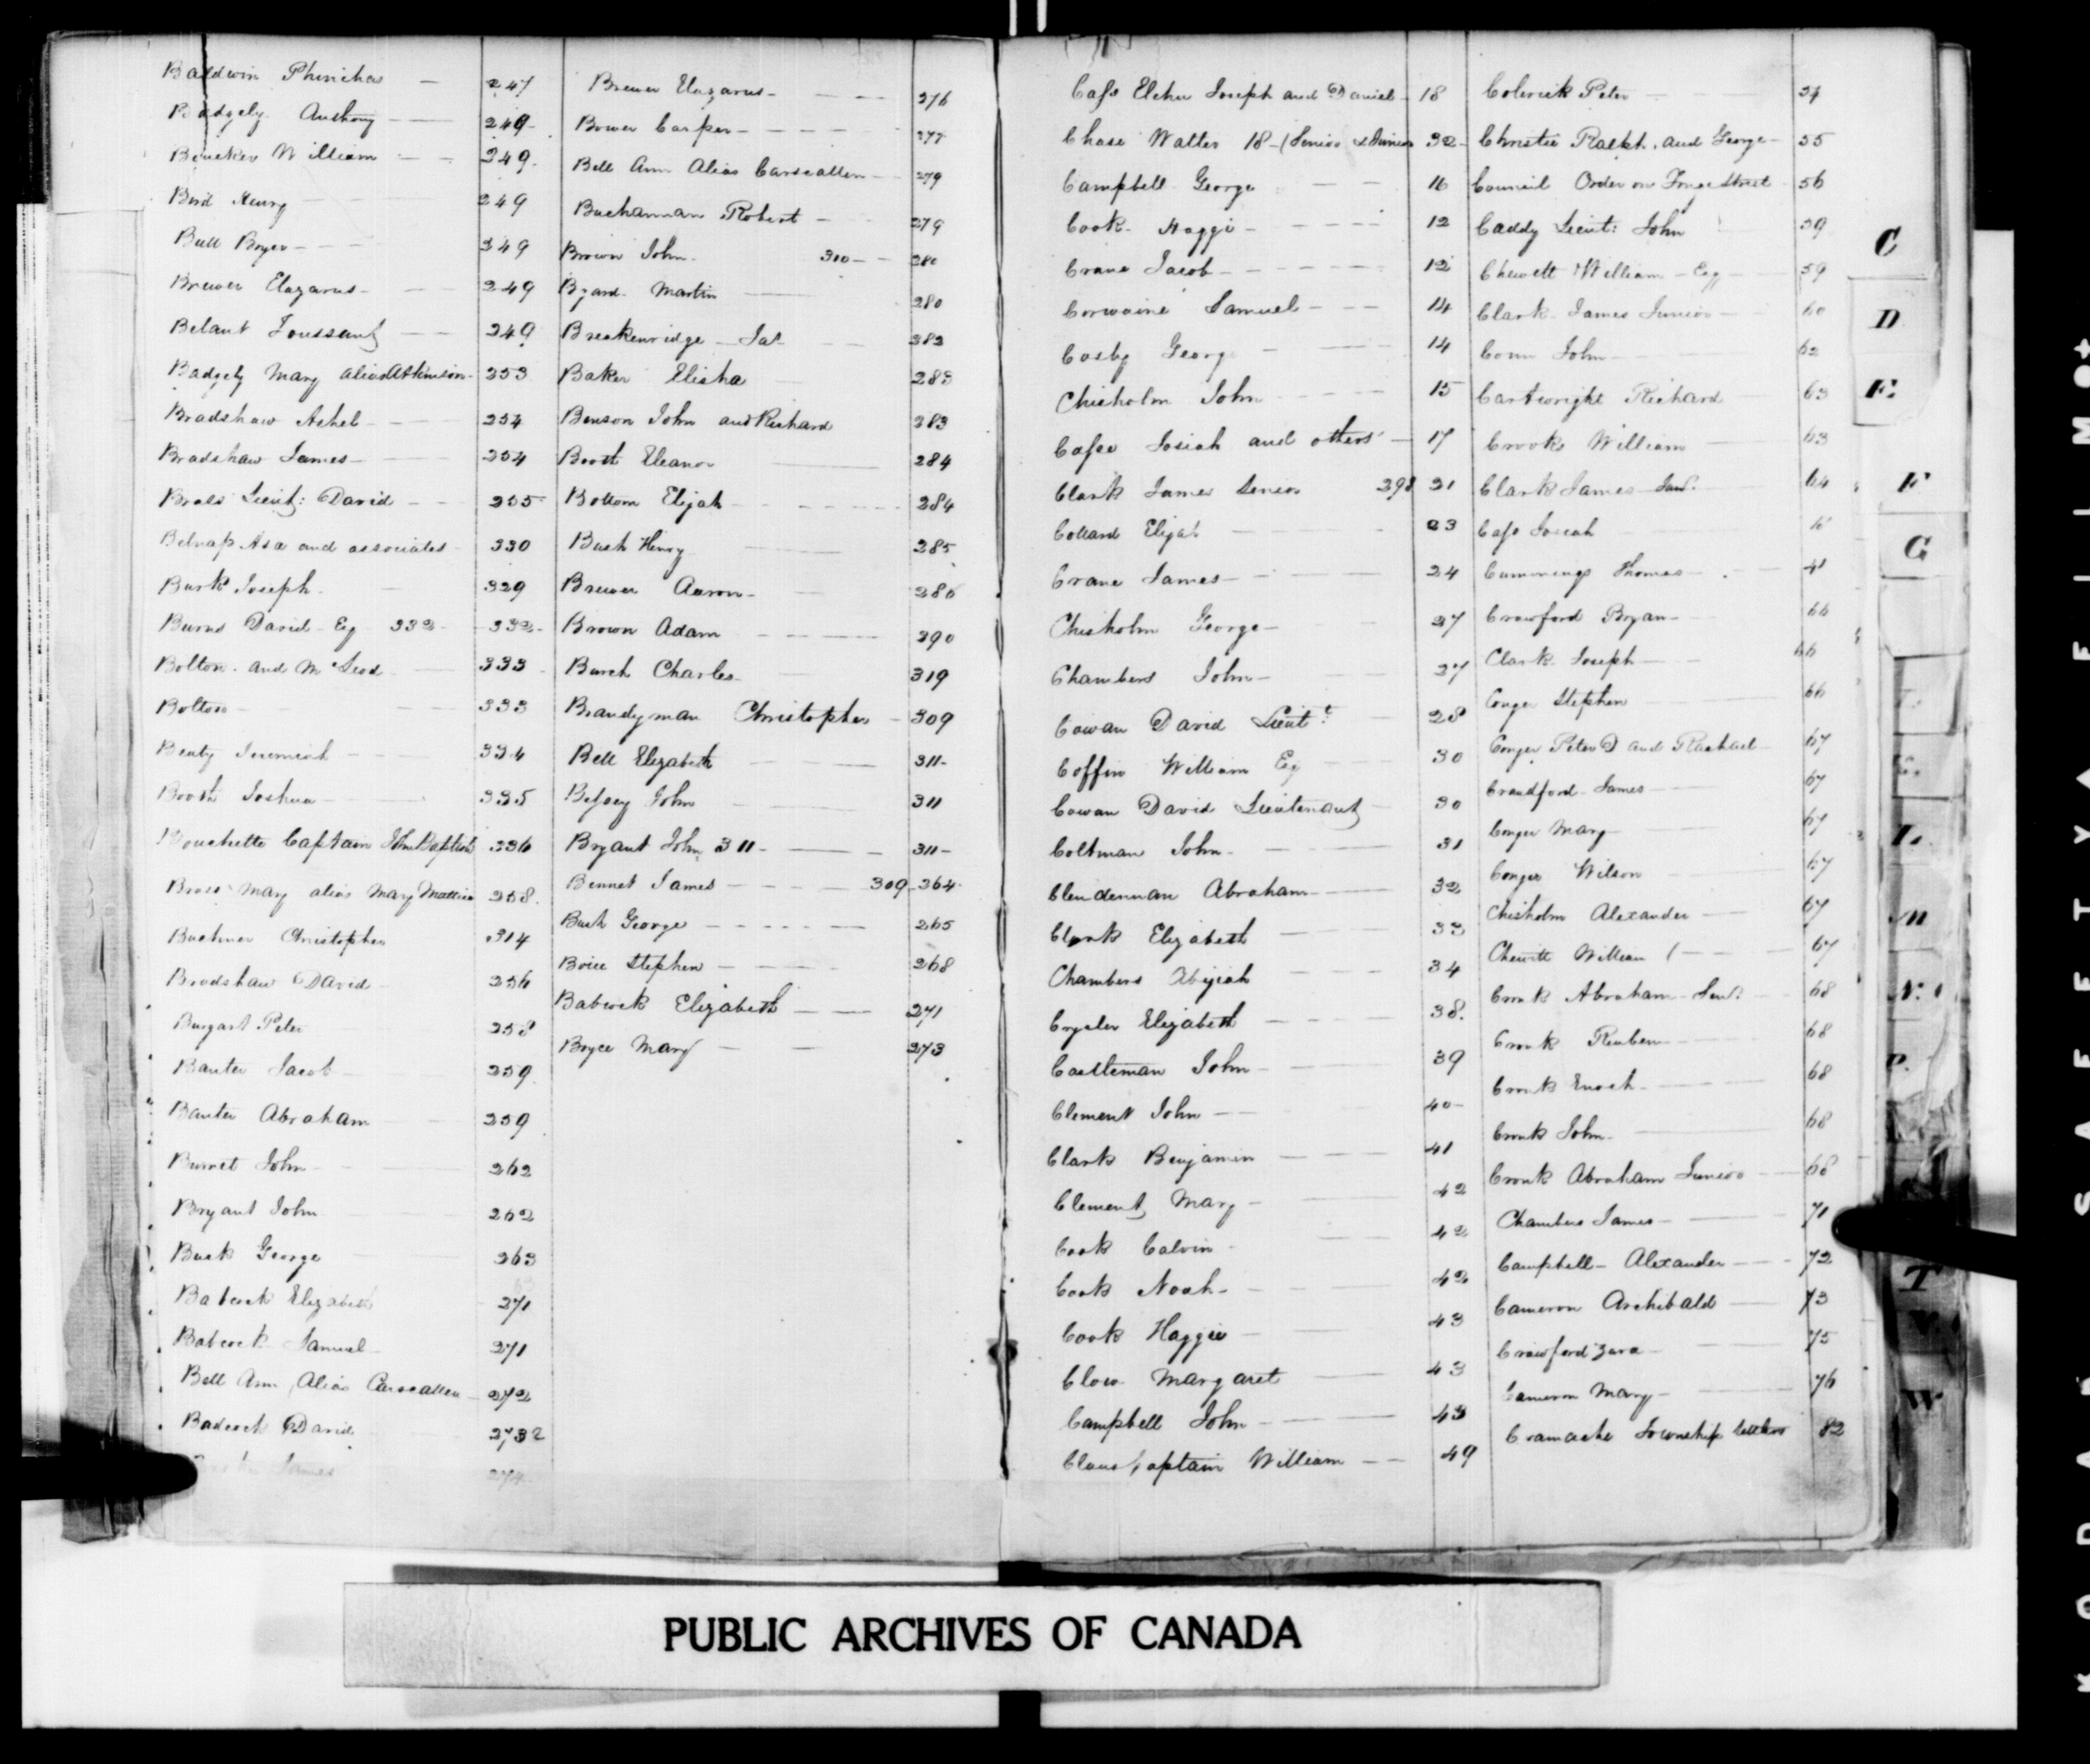 Baldwin Phinehas 247
Badgely Anthony 249
William 249
Bird Henry 249
Bull Boyer 249
Brewer Elazarus 249
Belant Toussant 249
Badgely Mary alias Atkinson 253
Bradshaw Ashel 254
Bradshaw James 254
Brass Lieut: David 255
Belnap Asa and associates 330
Burk Joseph 329
Burns David Esq 332 332
Bolton and McLeod 333
Bolton 333
Beaty Jeremiah 334
Booth Joshua 335
Bouchette Captain John Baptist 336
Brass Mary alias Mary Mattice 258
Buchner Christopher 314
Bradshaw David 256
Bungart Peter 258
Banter Jacob 259
Banter Abraham 259
Burnet John 262
Bryant John 262
Buck George 263
Babcock Elizabeth 271
Babcock Samuel 271
Bell Ann Alias Carscallen 272
Badcock David 273 2
James 274
Brewer Elazarus 276
Bower Casper 277
Bell Ann Alias Carscallen 279
Buchannan Robert 279
Brown John 310 280
Byard Martin 280
Breakenridge Jas 282
Baker Elisha 283
Benson John and Richard 283
Booth Eleanor 284
Bottom Elijah 284
Bush Henry 285
Brewer Aaron 286
Brown Adam 290
Burch Charles 319
Brandyman Christopher 309
Bell Elizabeth 311
Bessey John 311
Bryant John 311 311
Bennet James 309 264
Bush George 265
Boice Stephen 268
Babcock Elizabeth 271
Boyce Mary 273
Cass Elihu Joseph and Daniel 18
Chase Walter 18 (Senior & Junior 32
Campbell George 16
Cook Haggi 12
Crane Jacob 12
Corwaine Samuel 14
Cosby George 14
Chisholm John 15
Casse Josiah and others 17
Clark James Senior 298 21
Collard Elijah 23
Crane James 24
Chisholm George 27
Chambers John 27
Cowan David Lieut 28
Coffin William Esq 30
Cowan David Lieutenant 30
Coltman John 31
Clendennan Abraham 32
Clark Elizabeth 33
Chambers Abijiah 34
Crysler Elizabeth 38
Castleman John 39
Clement John 40
Clark Benjamin 41
Clement Mary 42
Cook Calvin 42
Cook Noah 42
Cook Haggie 43
Clow Margaret 43
Campbell John 43
Claus Captain William 49
Colerick Peter
Christie Ralph and George 55
Council Order on Yonge Street 56
Caddy Lieut: John 59
Chewett William Esq 59
Clark James Junior 60
Conn John 62
Cartwright Richard 63
Crooks William 63
Clark James Junr. 64
Cass Josiah
Cummings Thomas 41
Crawford Bryan 66
Clark Joseph 66
Conger Stephen 66
Conger Peter D and Rachael 67
Crandford James 67
Conger Mary 67
Conger Wilson 67
Chisholm Alexander 67
Chewitt William ( 67
Cronk Abraham Senr. 68
Cronk Reuben 68
Cronk Enoch 68
Cronk John 68
Cronk Abraham Junior 68
Chambers James 71
Campbell Alexander 72
Cameron Archibald 73
Crawford Zara 75
Cameron Mary 76
Cramache Township Settlers 82
C
D
E
F
G
L
M
N
P
T
W
PUBLIC ARCHIVES OF CANADA